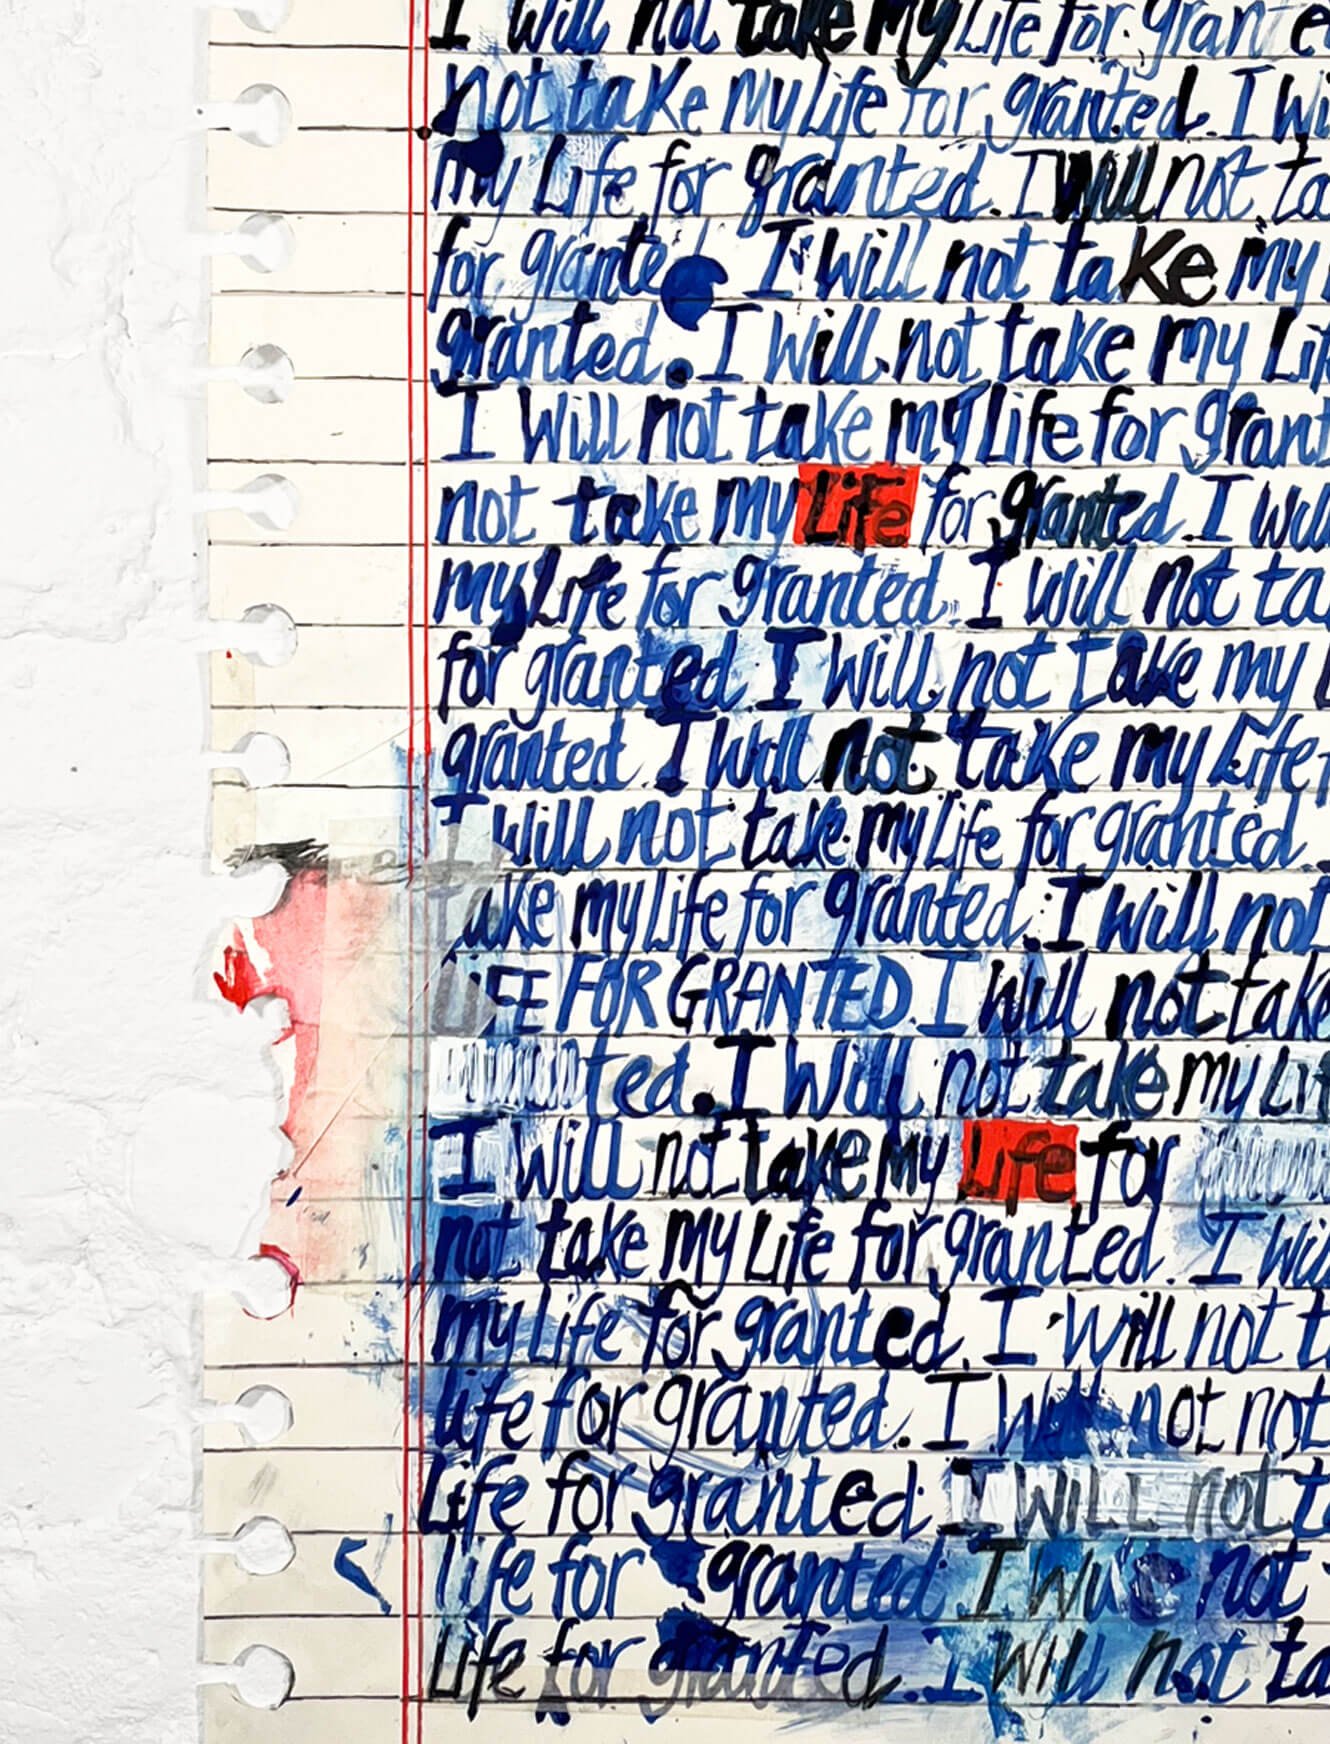 I will not take my Life for grante
not take my Life for granted. I wi
my Life for granted. I will not ta
for grante I will not take my
granted. I will not take my Lif
I will not take my Life for grant
not take my Life for granted. I will
my Life for granted. I will not ta
for granted I will not take my L
granted. I will not take my Life
I will not take my Life for granted.
ake my Life for granted. I will not
LIFE FOR GRANTED. I will not take
ted. I will not take my Lif
I will not take my Life for
not take my Life for granted. I wil
my Life for granted. I will not t
life for granted. I will not not
Life for granted. I WILL not t
life for granted I will not
Life for granted. I will not ta